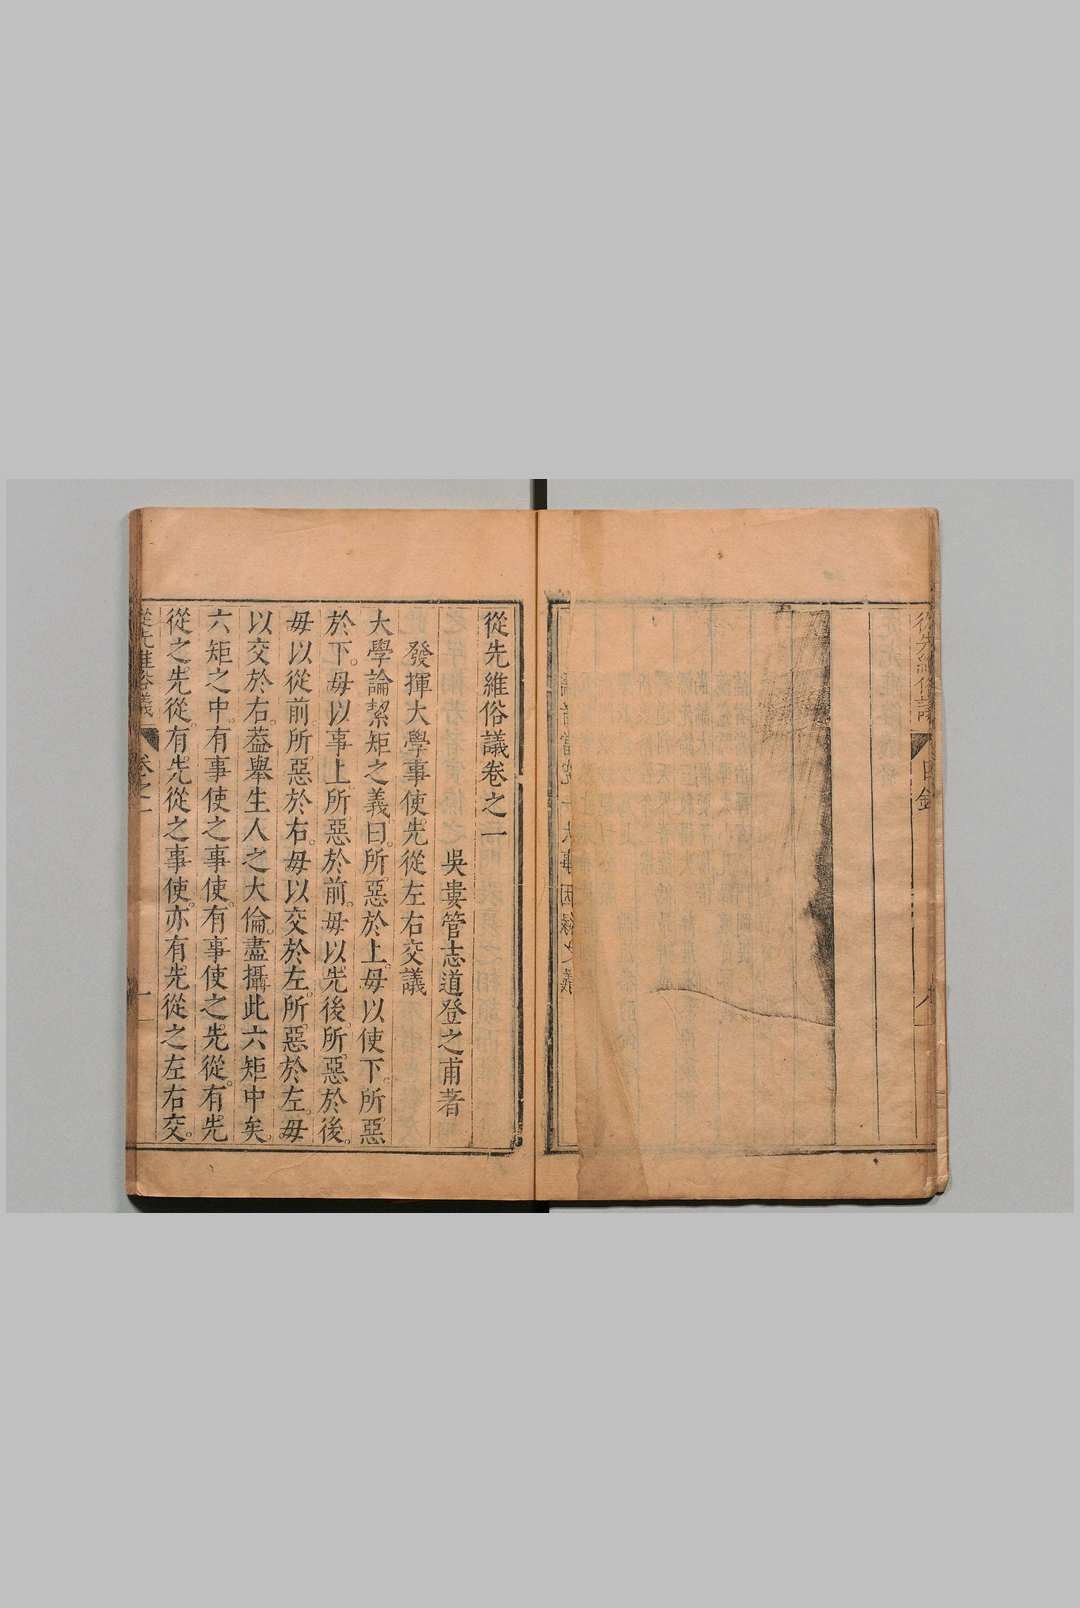 從先維俗議
目錄
八
從先維俗議卷之一
吳婁管志道登之甫著
發揮大學事使先從左右交議
大學論絜矩之義曰所惡於上毋以使下。所惡
於下。毋以事上。所惡於前。毋以先後所惡於後。
毋以從前。所惡於右。毋以交於左。所惡於左。毋
以交於右。葢舉生人之大倫。盡攝此六矩中矣。
六矩之中。有事使之事使。有事使之先從。有先
從之先從。有先從之事使。亦有先從之左右交。
從先維俗議
卷之一
一